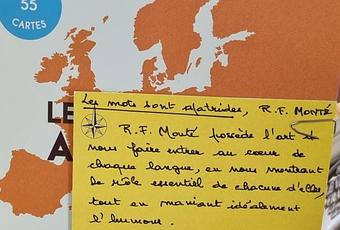 55
CARTES
LE
A
Les mots sont apatrides, R.F. MONTÉ
R.F. Monté possède l'art de
nous faire entrer au cœur de
chaque langue, en nous montrant
le rôle essentiel de chacune d'elles,
tout en maniant idéalement
l'humour.